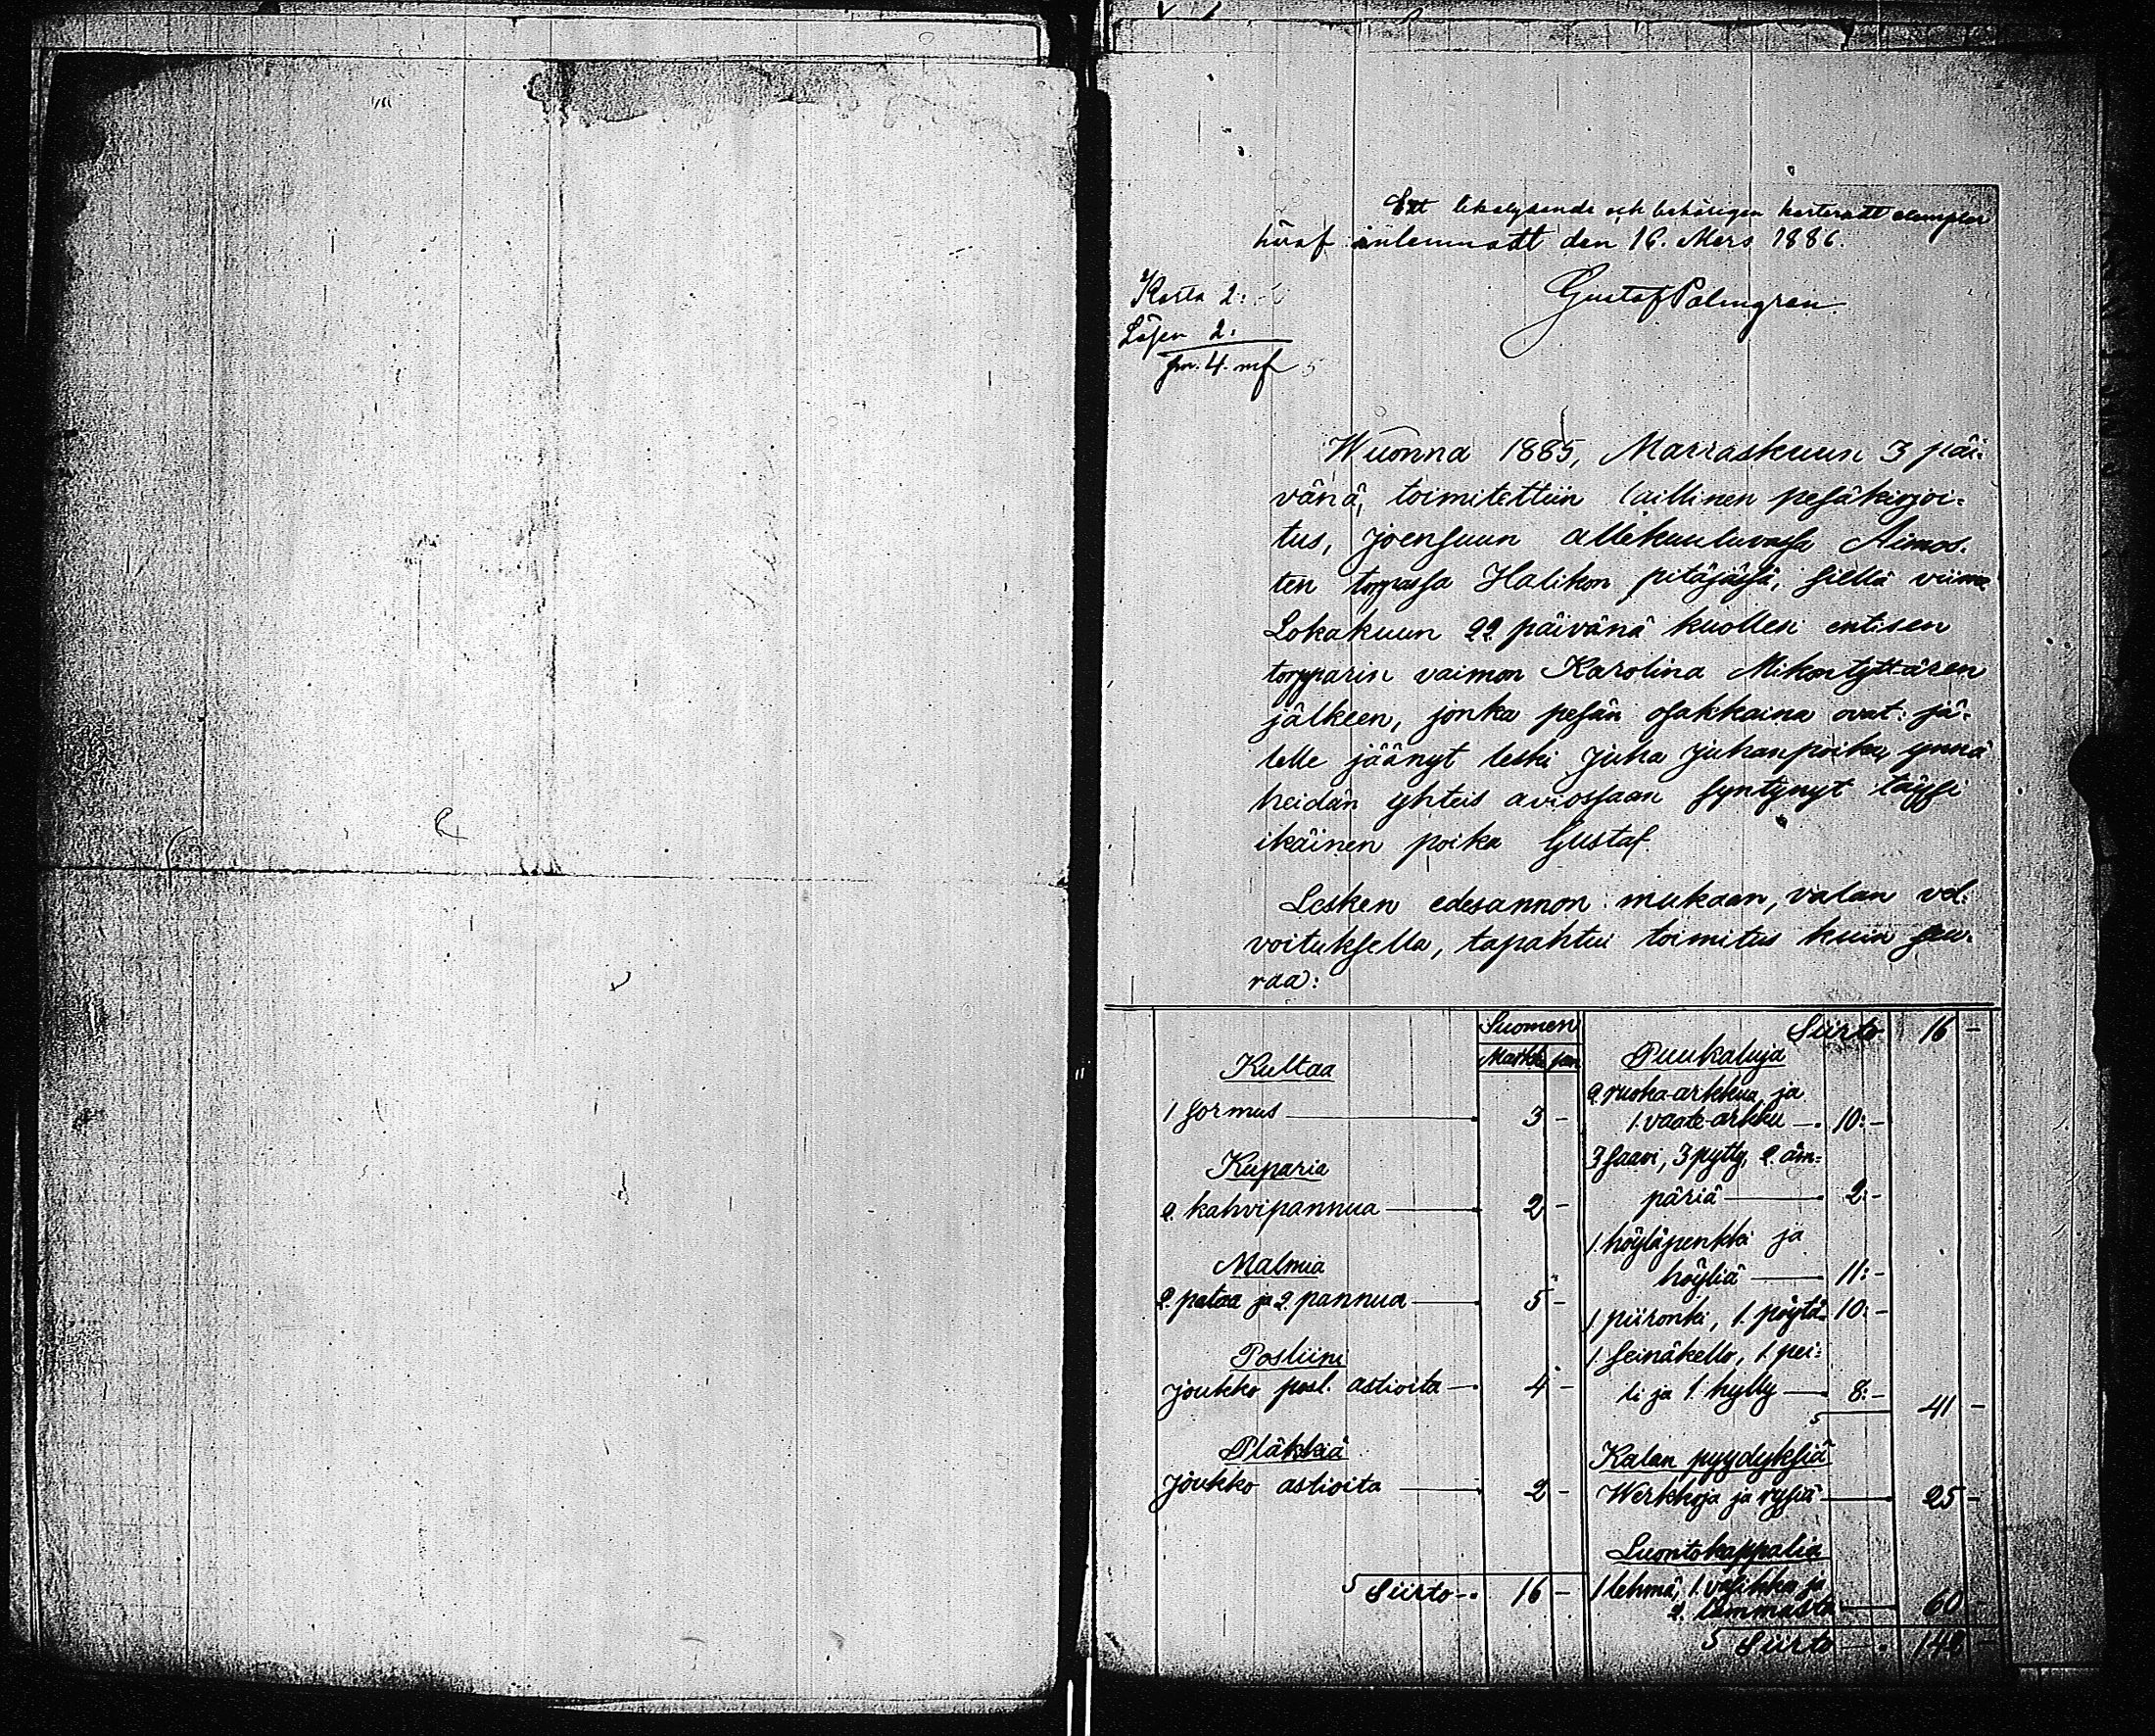 Ett likalydande och behörigen karteradt exemplar
häraf inlemnadt den 16. Mars 1886.
Gustaf Palmgren
Karta 2:
Lösen 2:
Fm. 4. mf
Wuonna 1885, Marraskuun 3 päi-
vänä, toimitettiin laillinen pesäkirjoi-
tus, Joensuun allekuuluvassa Aimos-
ten torpassa Halikon pitäjässä, siellä viime
Lokakuun 22 päivänä kuolleen entisen
torpparin vaimon Karolina Mikontyttären
jälkeen, jonka pesän osakkaina ovat: jä-
lelle jäänyt leski Juha Juhanpoika, ynnä
heidän yhteis aviossaan syntynyt täysi
ikäinen poika Gustaf.
Lesken edesannon mukaan, valan vel-
voituksella, tapahtui toimitus kuin seu-
raa:
Suomen
Markk. pen.
Kultaa
1 sormus 3 -
Kuparia
2. kahvipannua 2 -
Malmia
2. pataa ja 2. pannua 5 -
Posliini
Joukko posl. astioita 4 -
Pläkkiä
Joukko astioita 2 -
Siirto 16 -
Siirto 16 -
Puukaluja
2. ruoka-arkkua ja
1. vaate-arkku 10:-
3 saavi, 3 pytty, 2. äm-
päriä 2:-
1. höyläpenkki ja
höyliä 11:-
1. piironki, 1. pöytä 10:-
1. seinäkello, 1. pei-
li ja 1. hylly 8:- 41 -
Kalan pyydyksiä
Werkkoja ja rysiä 25 -
Luontokappalia
1 lehmä, 1. vasikka ja
2. lammasta 60 -
Siirto 142 -